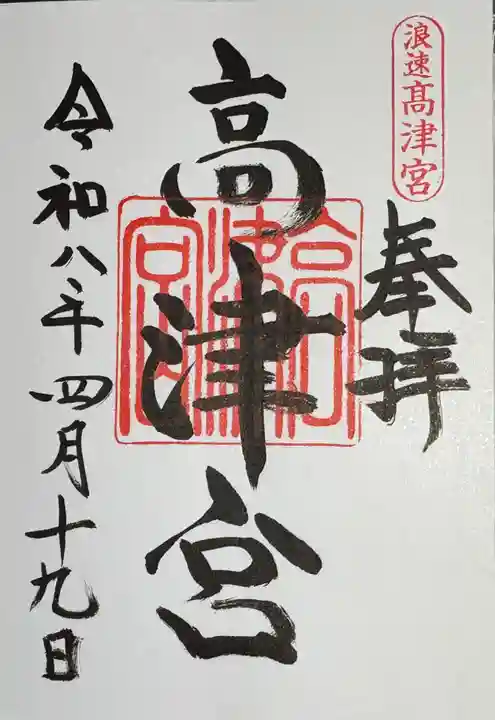 浪速髙津宮
奉拝
高津宮
高津宮
令和八年四月十九日